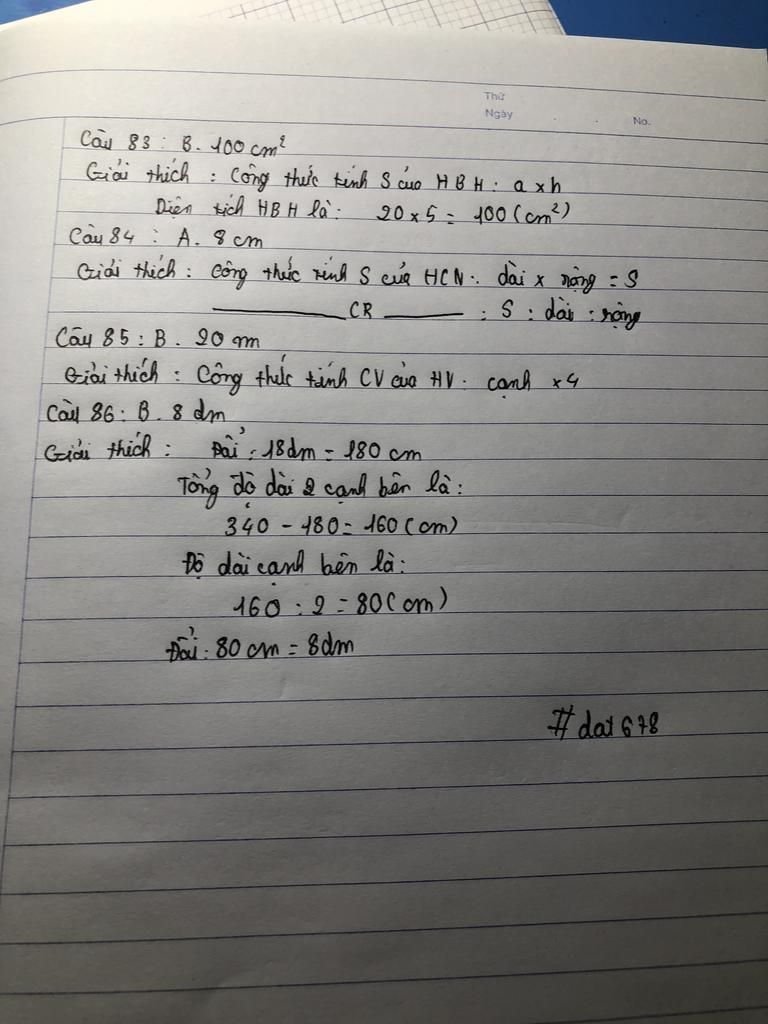 Thứ
Ngày . . No.
Câu 83 : B. 100 cm²
Giải thích : Công thức tính S của HBH : a x h
Diện tích HBH là : 20 x 5 = 100 (cm²)
Câu 84 : A. 8 cm
Giải thích : Công thức tính S của HCN : dài x rộng = S
CR : S : dài : rộng
Câu 85 : B. 20 m
Giải thích : Công thức tính CV của HV : cạnh x 4
Câu 86 : B. 8 dm
Giải thích : Đổi : 18dm = 180 cm
Tổng độ dài 2 cạnh bên là :
340 - 180 = 160 (cm)
Độ dài cạnh bên là :
160 : 2 = 80 (cm)
Đổi : 80 cm = 8dm
# dat 678